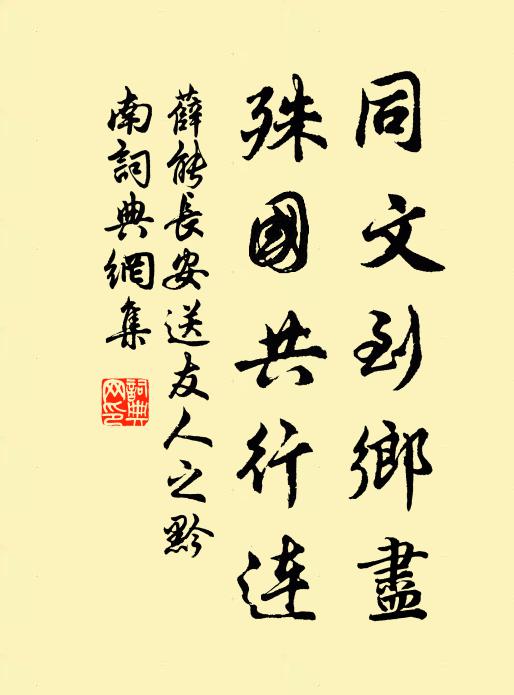 同文到鄉盡
殊國共行連
薛能長安送友人之黔
南詞典網集
詞典
网印